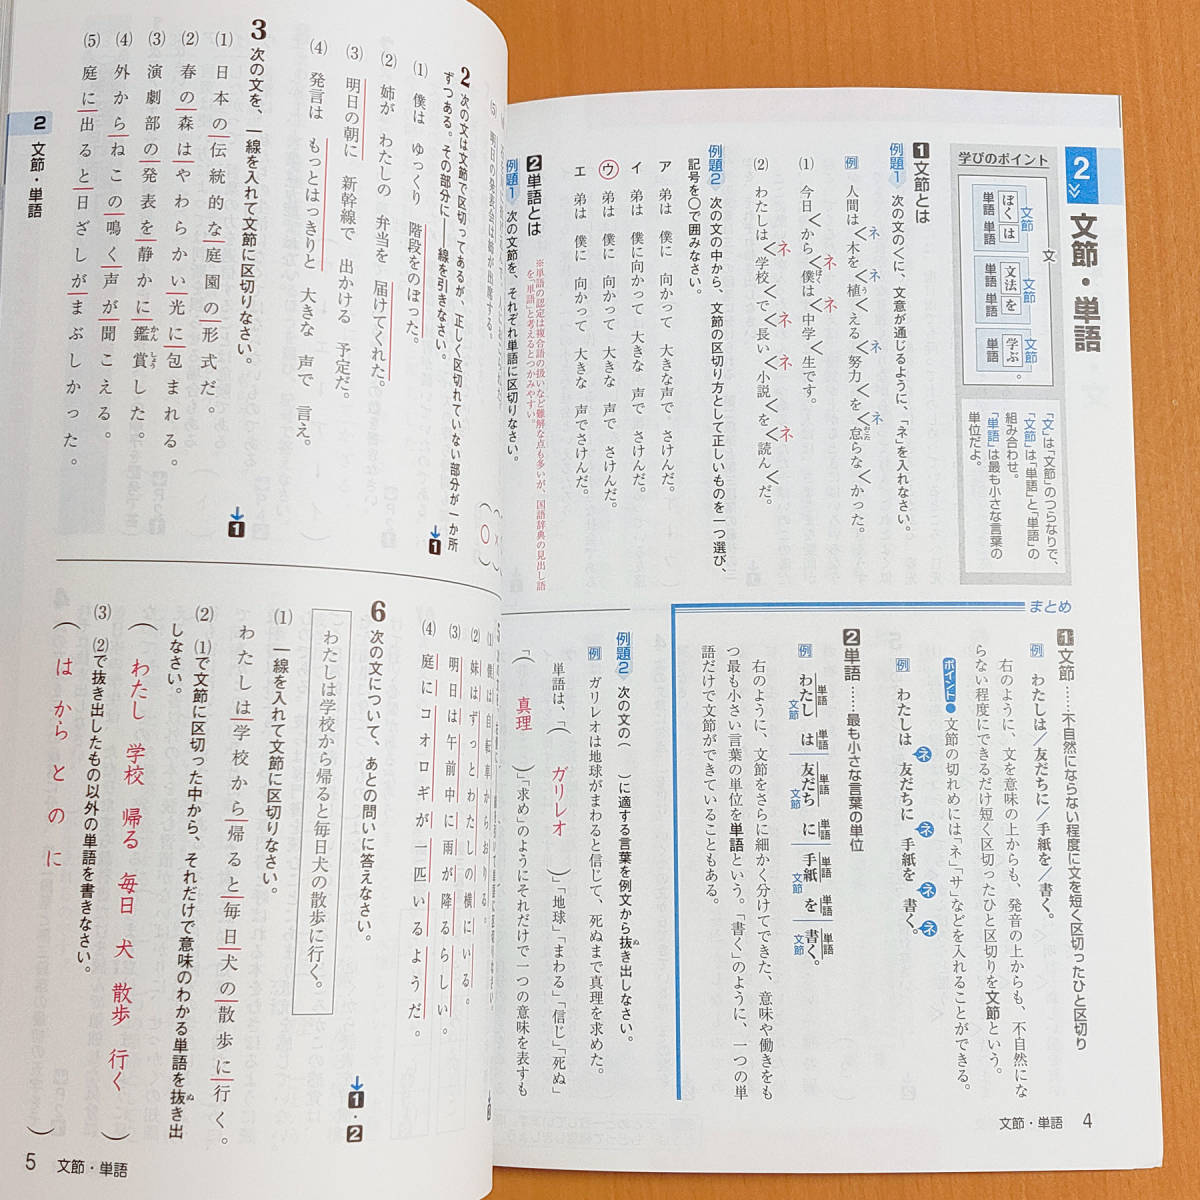 2 文節・単語
学びのポイント
文
文節 文節 文節
ぼく は 文法 を 学ぶ 。
単語 単語 単語 単語 単語
「文」は「文節」のつらなりで、
「文節」は「単語」と「単語」の
組み合わせ。
「単語」は最も小さな言葉の
単位だよ。
1 文節とは
例題1 次の文の＜に、文意が通じるように、「ネ」を入れなさい。
例 人間は＜木を＜植＜える＜努力＜を＜怠らな＜かった。
ネ ネ ネ ネ
(1) 今日＜から＜僕は＜中学＜生です。
ネ ネ
(2) わたしは＜学校＜で＜長い＜小説＜を＜読ん＜だ。
ネ ネ ネ ネ
例題2 次の文の中から、文節の区切り方として正しいものを一つ選び、
記号を○で囲みなさい。
ア 弟は 僕に 向かって 大きな声で さけんだ。
イ 弟は 僕に向かって 大きな 声で さけんだ。
ウ 弟は 僕に 向かって 大きな 声で さけんだ。
エ 弟は 僕に 向かって 大きな 声でさけんだ。
2 単語とは
※単語の認定は複合語の扱いなど難解な点も多いが、国語辞典の見出し語
を「単語」と考えるとつかみやすい。
例題1 次の文節を、それぞれ単語に区切りなさい。
まとめ
1 文節……不自然にならない程度に文を短く区切ったひと区切り
例 わたしは／友だちに／手紙を／書く。
右のように、文を意味の上からも、発音の上からも、不自然にな
らない程度にできるだけ短く区切ったひと区切りを文節という。
ポイント● 文節の切れめには「ネ」「サ」などを入れることができる。
例 わたしは ネ 友だちに ネ 手紙を ネ 書く。 ネ
2 単語……最も小さな言葉の単位
例 わたし は 友だち に 手紙 を 書く。
単語 単語 単語 単語 単語 単語 単語
文節 文節 文節 文節
右のように、文節をさらに細かく分けてできた、意味や働きをも
つ最も小さい言葉の単位を単語という。「書く」のように、一つの単
語だけで文節ができていることもある。
例題2 次の文の（ ）に適する言葉を例文から抜き出しなさい。
例 ガリレオは地球がまわると信じて、死ぬまで真理を求めた。
単語は、「（ ガリレオ ）」「地球」「まわる」「信じ」「死ぬ」
「（ 真理 ）」「求め」のようにそれだけで一つの意味を表すも
文節・単語 4
2 次の文は文節で区切ってあるが、正しく区切れていない部分が一か所
ずつある。その部分に――線を引きなさい。
↓1
(1) 僕は ゆっくり 階段をのぼった。
(2) 姉が わたしの 弁当を 届けてくれた。
(3) 明日の朝に 新幹線で 出かける 予定だ。
(4) 発言は もっとはっきりと 大きな 声で 言え。
3 次の文を、一線を入れて文節に区切りなさい。
↓1
(1) 日本の伝統的な庭園の形式だ。
(2) 春の森はやわらかい光に包まれる。
(3) 演劇部の発表を静かに鑑賞した。
(4) 外からねこの鳴く声が聞こえる。
(5) 庭に出ると日ざしがまぶしかった。
2 文節・単語
(2) 妹はずっとわたしの横にいる。
(3) 明日は午前中に雨が降るらしい。
(4) 庭にコオロギが一匹いるようだ。
6 次の文について、あとの問いに答えなさい。
↓1・2
わたしは学校から帰ると毎日犬の散歩に行く。
(1) 一線を入れて文節に区切りなさい。
わたしは学校から帰ると毎日犬の散歩に行く。
(2) (1)で文節に区切った中から、それだけで意味のわかる単語を抜き出
しなさい。
（ わたし 学校 帰る 毎日 犬 散歩 行く ）
(3) (2)で抜き出したもの以外の単語を書きなさい。
（ は から と の に ）
5 文節・単語